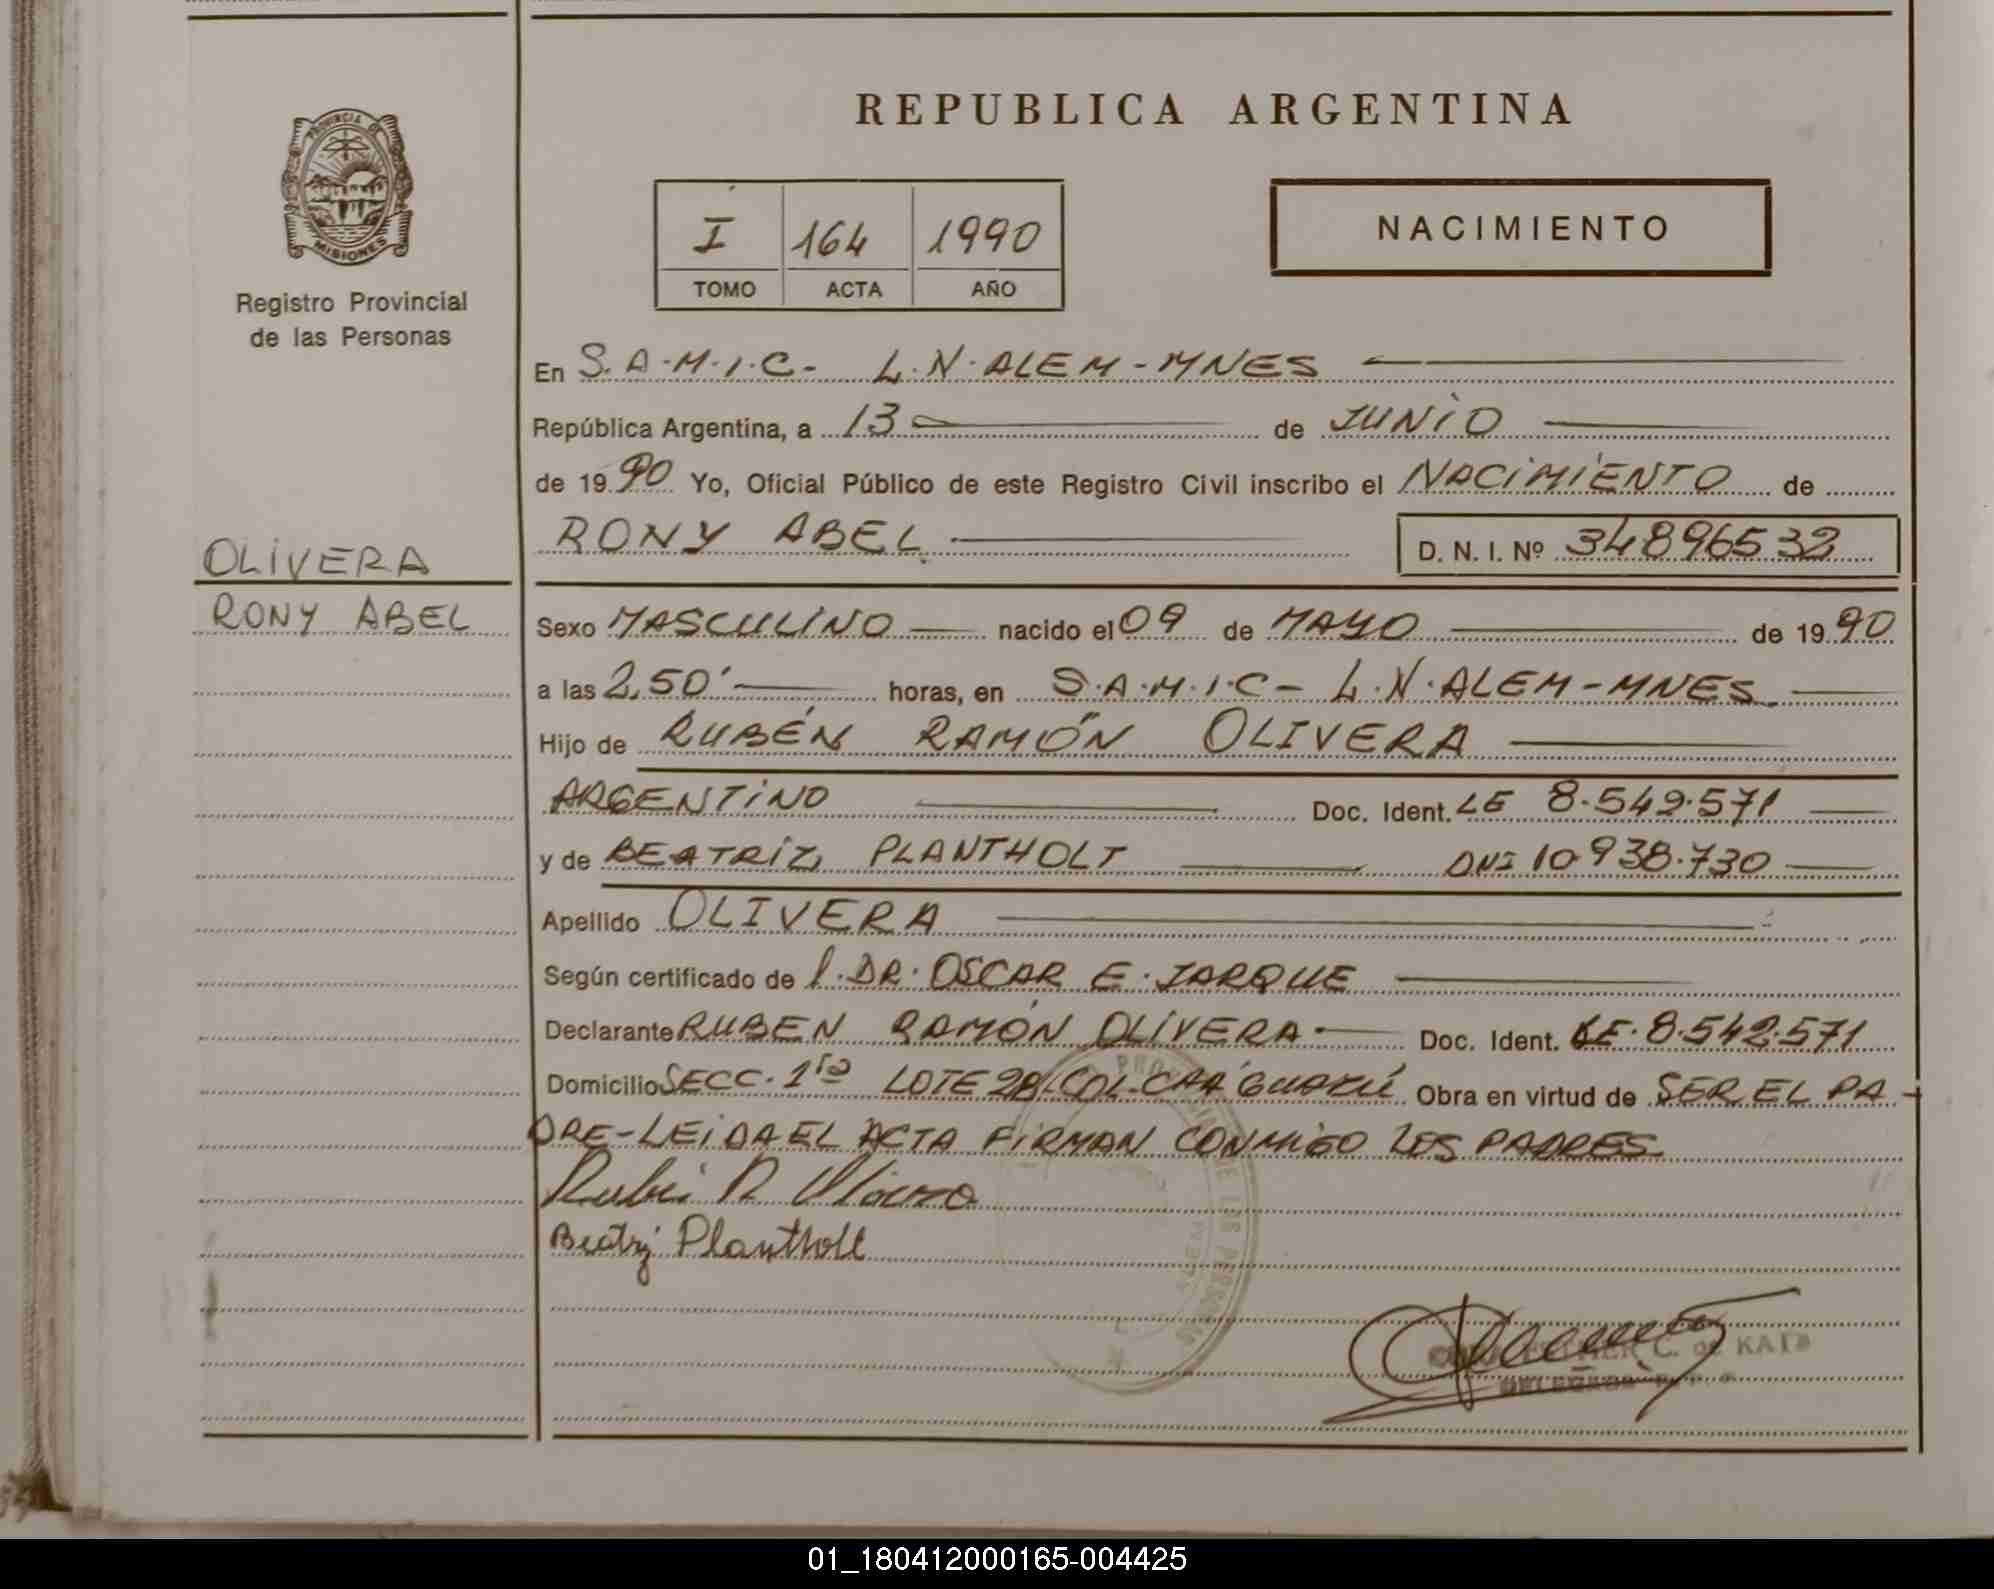 REPUBLICA ARGENTINA
PROVINCIA DE
MISIONES
Registro Provincial
de las Personas
I 164 1990
TOMO ACTA AÑO
NACIMIENTO
En S.A.M.I.C- L.N.ALEM-MNES
República Argentina, a 13 de JUNIO
de 1990 Yo, Oficial Público de este Registro Civil inscribo el NACIMIENTO de
RONY ABEL D. N. I. Nº 34896532
OLIVERA
RONY ABEL
Sexo MASCULINO nacido el 09 de MAYO de 1990
a las 2,50' horas, en S.A.M.I.C- L.N.ALEM-MNES
Hijo de RUBÉN RAMÓN OLIVERA
ARGENTINO Doc. Ident. LE 8.542.571
y de BEATRIZ PLANTHOLT DNI 10.938.730
Apellido OLIVERA
Según certificado de l. DR. OSCAR E. JARQUE
Declarante RUBEN RAMÓN OLIVERA Doc. Ident. LE. 8.542.571
Domicilio SECC. 1ra LOTE 28 COL. CAÁ GUAZÚ Obra en virtud de SER EL PA-
DRE-LEIDA EL ACTA FIRMAN CONMIGO LOS PADRES
Rubén R Olivera
Beatriz Plantholt
C. DE KAID
01_180412000165-004425